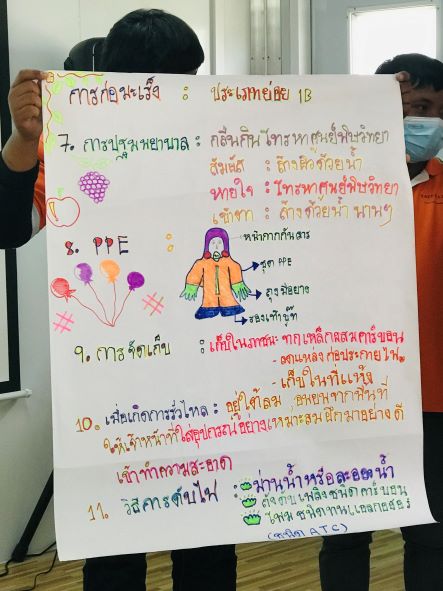 การก่อมะเร็ง : ประเภทย่อย 1B
7. การปฐมพยาบาล : กลืนกินโทรหาศูนย์พิษวิทยา
สัมผัส : ล้างผิวด้วยน้ำ
หายใจ : โทรหาศูนย์พิษวิทยา
เข้าตา : ล้างด้วยน้ำ นานๆ
8. PPE :
หน้ากากกันสาร
ชุด PPE
ถุงมือยาง
รองเท้าบู๊ท
9. การจัดเก็บ : เก็บในภาชนะทำจากเหล็กผสมคาร์บอน
- เก็บในที่แห้ง
10. เมื่อเกิดการรั่วไหล : อยู่ใต้ลม อพยพทุกพื้นที่
ให้เจ้าหน้าที่ใส่อุปกรณ์อย่างเหมาะสมฝึกมาอย่างดี
เข้าทำความสะอาด
11. วิธีการดับไฟ : ม่านน้ำหรือละอองน้ำ
ถังดับเพลิงชนิดคาร์บอน
โฟมชนิดทนแอลกอฮอร์
(ชนิด ATC)